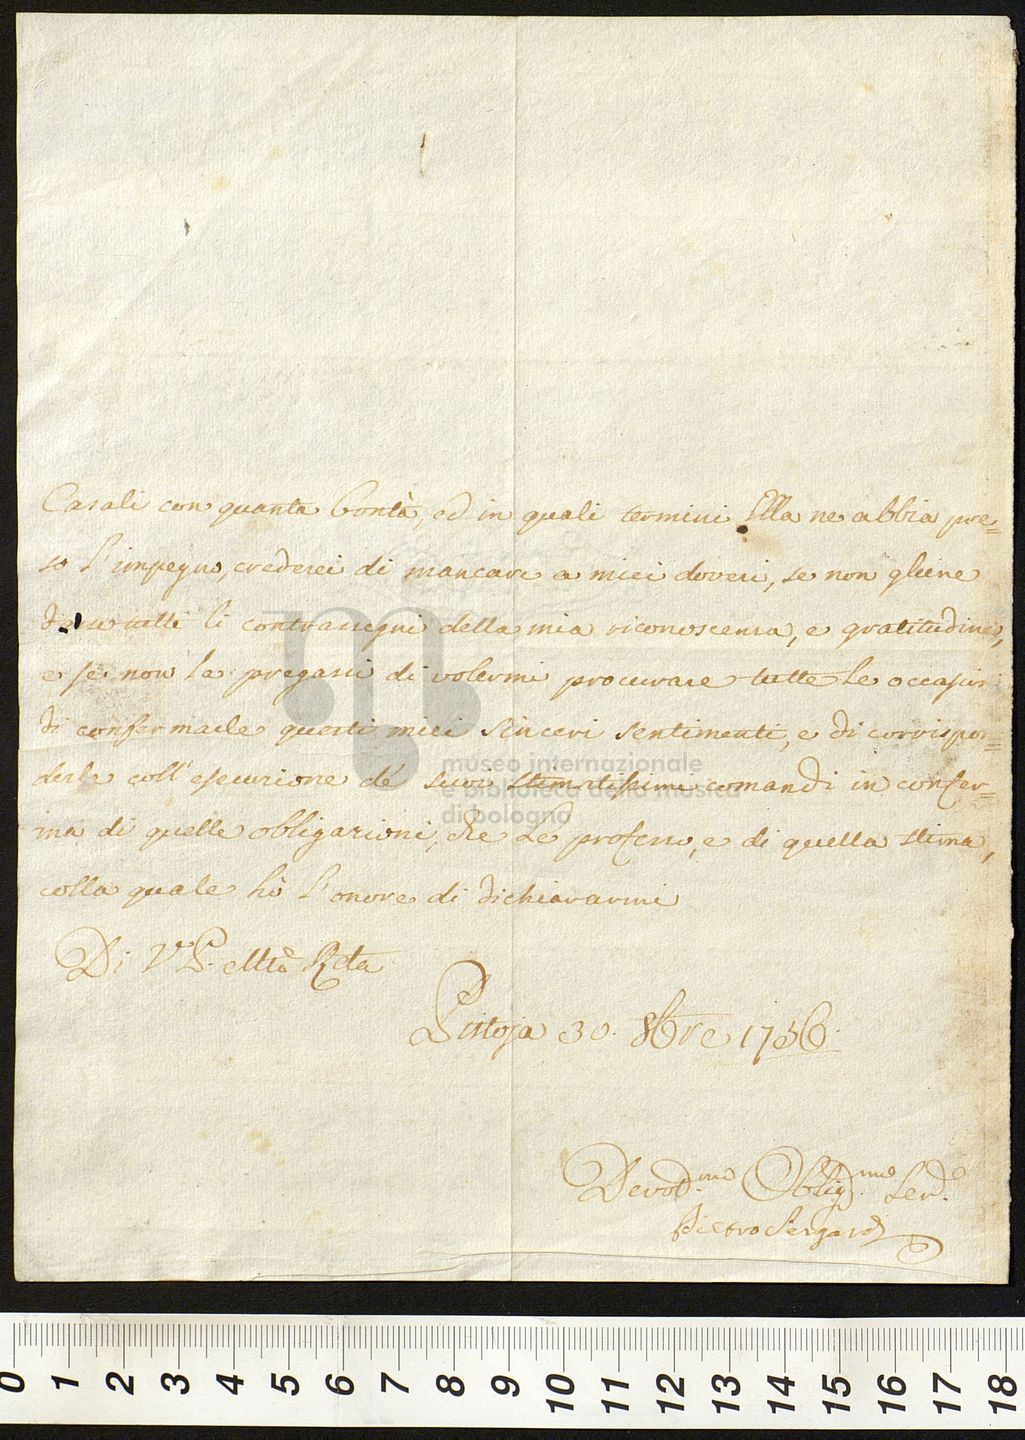 Casali con quanta bontà, ed in quali termini Ella ne abbia pre=
so l'impegno, crederei di mancare a miei doveri, se non gliene
tutti li contrassegni della mia riconoscenza, e gratitudine,
e se non la pregassi di volermi procurare tutte le occasioni
di confermarle questi miei sinceri sentimenti, e di corrispon=
derle coll'esecuzione de' suoi stimatissimi comandi in confer=
ma di quelle obligazioni, che Le professo, e di quella stima,
colla quale hò l'onore di dichiararmi
Di V.ª P. Mtõ Rda
Pistoja 30. 8bre 1756.
Devot.mo Oblig.mo Ser.e
Pietro Sergardi
museo internazionale
e biblioteca della musica
di bologna
0 1 2 3 4 5 6 7 8 9 10 11 12 13 14 15 16 17 18